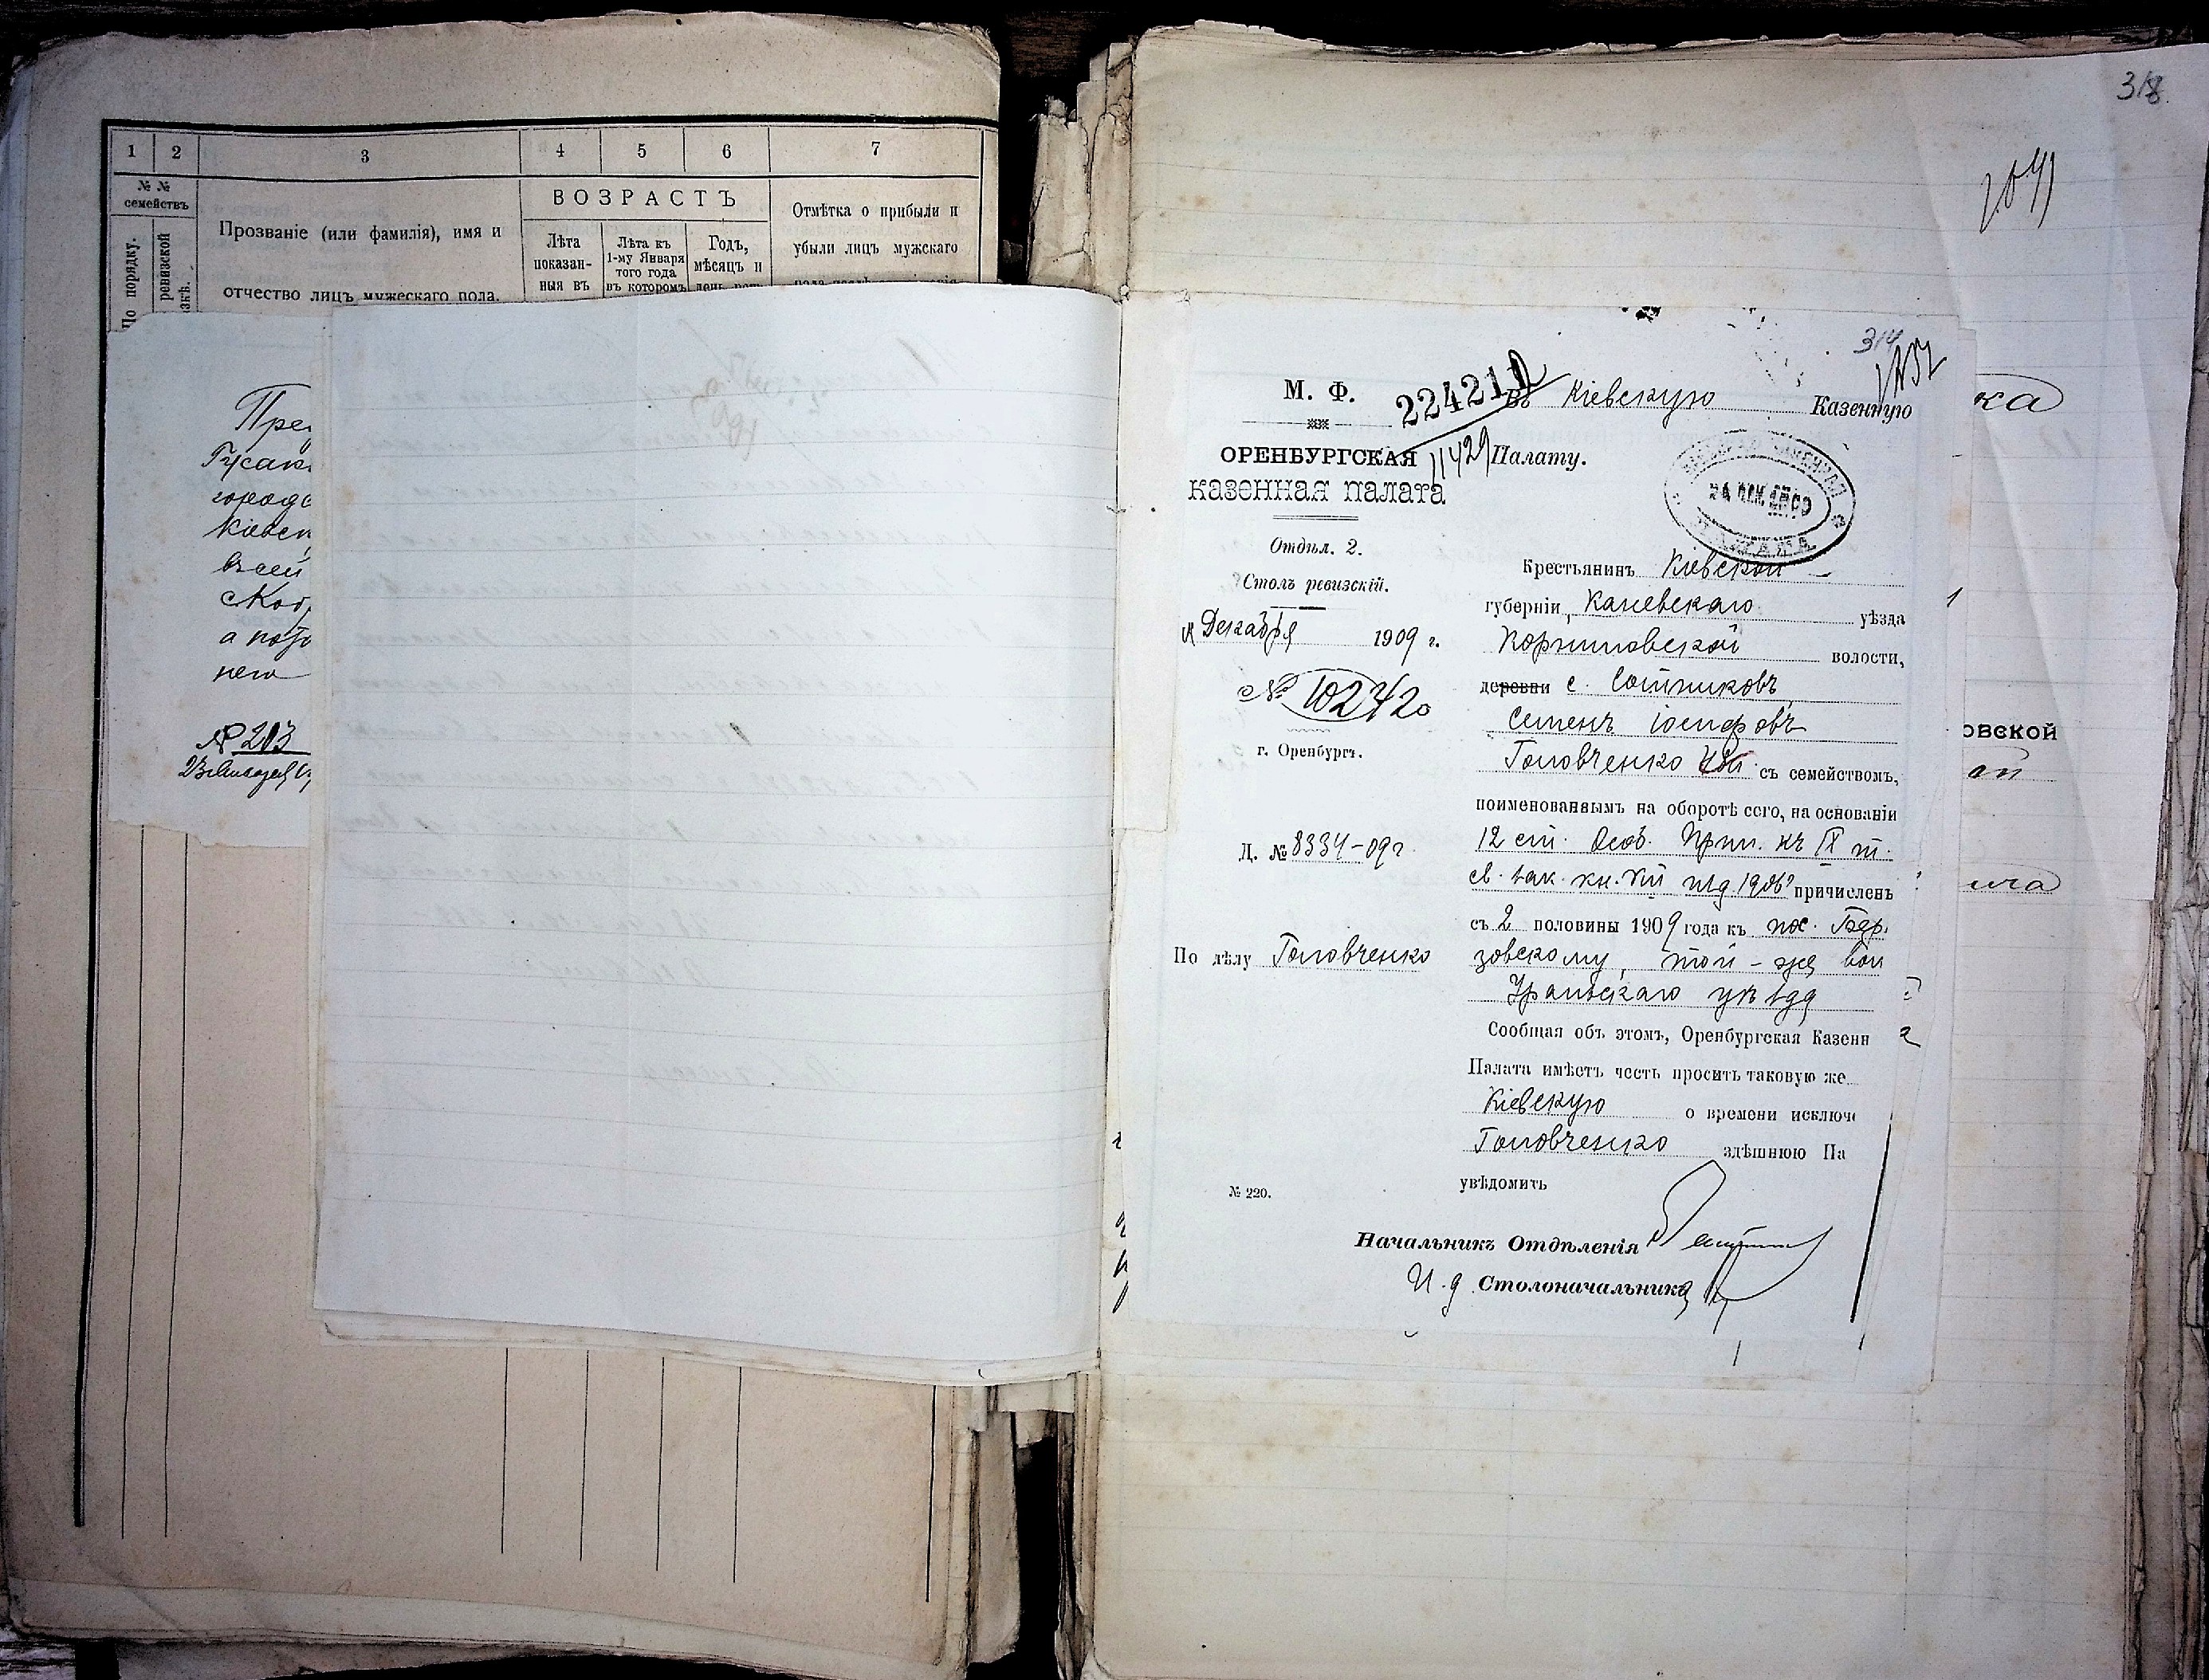 1 2 3 4 5 6 7
№ № семействъ
По порядку.
ревизской
Прозваніе (или фамилія), имя и
отчество лицъ мужескаго пола.
ВОЗРАСТЪ
Лѣта показан-
ныя въ
Лѣта къ
1-му Января
того года
въ которомъ
Годъ,
мѣсяцъ и
Отмѣтка о прибыли и
убыли лицъ мужскаго
городс
Кіевск
а пото
него
№ 213
318
ка
овской
314
М. Ф.
224210
Въ Кіевскую Казенную
ОРЕНБУРГСКАЯ
11429 Палату.
КАЗЕННАЯ ПАЛАТА
Отдѣл. 2.
Столъ ревизскій.
Декабря 1909 г.
№ 10242
г. Оренбургъ.
Д. № 8334-09 г
По дѣлу Головченко
№ 220.
Крестьянинъ Кіевской
губерніи, Каневскаго уѣзда
Корниловской волости,
деревни с. Сотниковъ
Семенъ Іосифовъ
Головченко съ семействомъ,
поименованнымъ на оборотѣ сего, на основаніи
12 ст. Особ. Прил. къ IX т.
св. зак. кн. VIII изд. 1906 причисленъ
съ 2 половины 1909 года къ пос.
зовскому, той-же вол
Уральскаго уѣзда
Сообщая объ этомъ, Оренбургская Казенн
Палата имѣетъ честь просить таковую же
Кіевскую о времени исключ
Головченко здѣшнюю Па
увѣдомить
Начальникъ Отдѣленія
И. д. Столоначальника